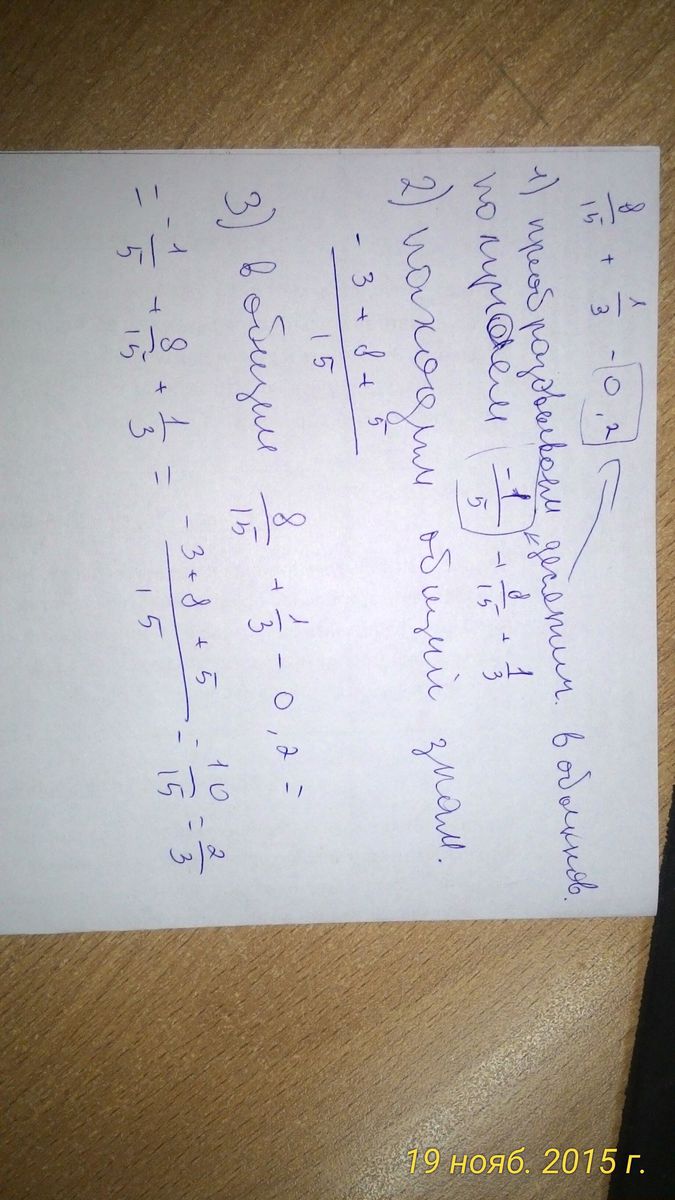 8/15 + 1/3 - 0,2
1) преобразовываем десятичн. в обыкнов.
получаем -1/5 + 8/15 + 1/3
2) находим общий знам.
(-3 + 8 + 5)/15
3) в общем 8/15 + 1/3 - 0,2 =
= -1/5 + 8/15 + 1/3 = (-3+8+5)/15 = 10/15 = 2/3
19 нояб. 2015 г.